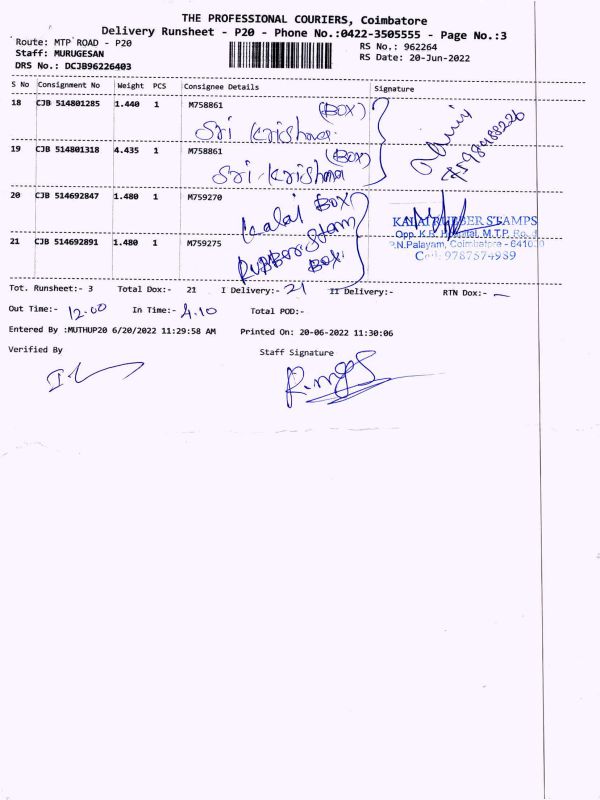 THE PROFESSIONAL COURIERS, Coimbatore
Delivery Runsheet - P20 - Phone No.:0422-3505555 - Page No.:3
Route: MTP ROAD - P20
RS No.: 962264
Staff: MURUGESAN
RS Date: 20-Jun-2022
DRS No.: DCJB96226403
S No Consignment No Weight PCS Consignee Details Signature
18 CJB 514801285 1.440 1 M758861 (BOX)
Sri Krishna.
19 CJB 514801318 4.435 1 M758861 (BOX)
Sri. Krishna
20 CJB 514692847 1.480 1 M759270
Kalai BOX
KALAI RUBBER STAMPS
21 CJB 514692891 1.480 1 M759275
Rubber Stam
Box.
P.N.Palayam, Coimbatore - 641020
Cell: 9787574989
Tot. Runsheet:- 3 Total Dox:- 21 I Delivery:- 21 II Delivery:- RTN Dox:- -
Out Time:- 12.00 In Time:- 4.10 Total POD:-
Entered By :MUTHUP20 6/20/2022 11:29:58 AM Printed On: 20-06-2022 11:30:06
Verified By Staff Signature